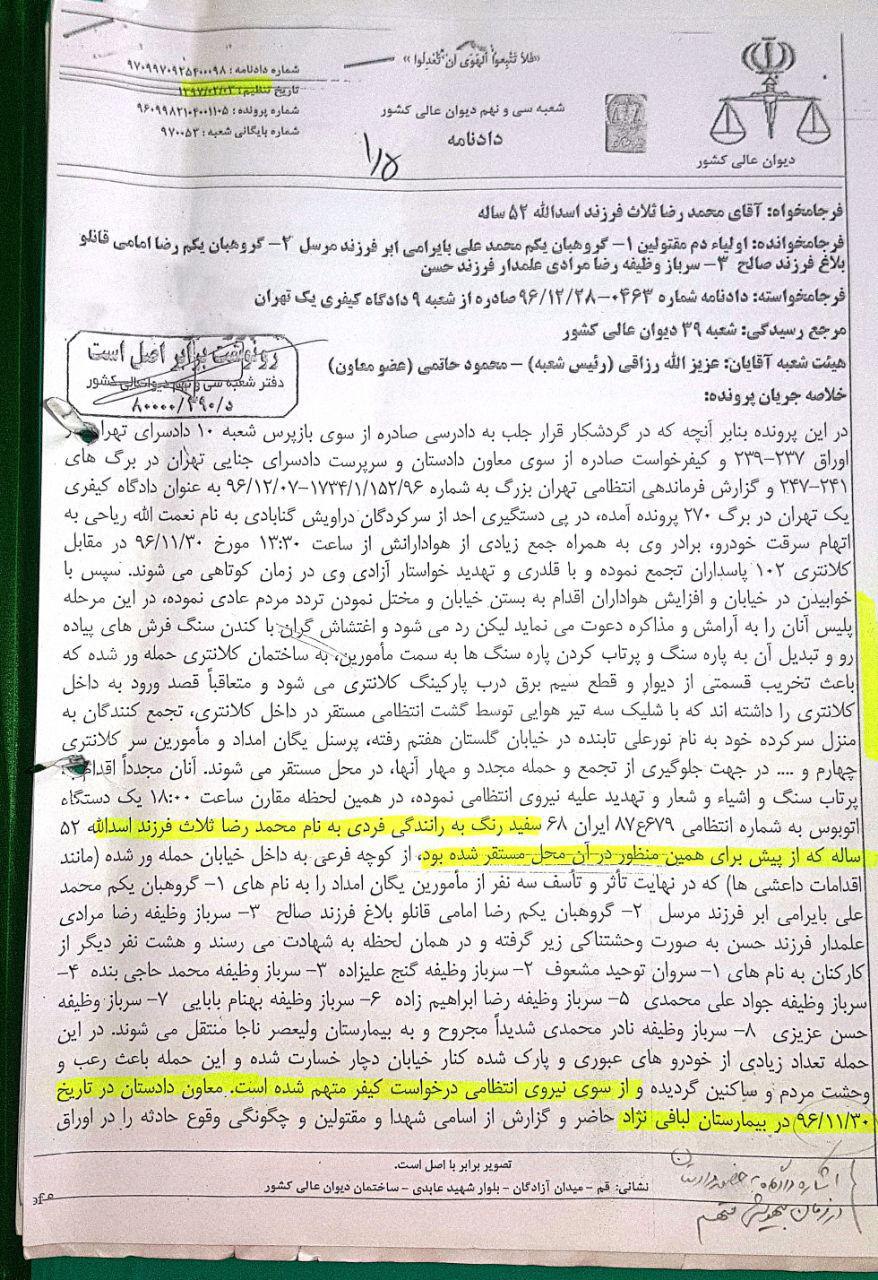 «فَلاَ تَتَّبِعواْ الْهَوَى أَن تَعْدِلُواْ»
دیوان عالی کشور
شعبه سی و نهم دیوان عالی کشور
دادنامه
شماره دادنامه: ۹۷۰۹۹۷۰۹۲۵۴۰۰۰۹۸
تاریخ تنظیم: ۱۳۹۷/۰۲/۰۳
شماره پرونده: ۹۶۰۹۹۸۲۱۰۲۰۰۱۱۰۵
شماره بایگانی شعبه: ۹۷۰۰۵۲
۱/۵
فرجامخواه: آقای محمد رضا ثلاث فرزند اسدالله ۵۲ ساله
فرجامخوانده: اولیاء دم مقتولین ۱- گروهبان یکم محمد علی بایرامی ابر فرزند مرسل ۲- گروهبان یکم رضا امامی قانلو
بلاغ فرزند صالح ۳- سرباز وظیفه رضا مرادی علمدار فرزند حسن
فرجامخواسته: دادنامه شماره ۰۴۶۳-۹۶/۱۲/۲۸ صادره از شعبه ۹ دادگاه کیفری یک تهران
مرجع رسیدگی: شعبه ۳۹ دیوان عالی کشور
هیئت شعبه آقایان: عزیز الله رزاقی (رئیس شعبه) – محمود حاتمی (عضو معاون)
خلاصه جریان پرونده:
رونوشت برابر اصل است
دفتر شعبه سی و نهم دیوانعالی کشور
۸۰۰۰۰/۳۹۰/د
در این پرونده بنابر آنچه که در گردشکار قرار جلب به دادرسی صادره از سوی بازپرس شعبه ۱۰ دادسرای تهران در
اوراق ۲۳۷-۲۳۹ و کیفرخواست صادره از سوی معاون دادستان و سرپرست دادسرای جنایی تهران در برگ های
۲۴۱-۲۴۷ و گزارش فرماندهی انتظامی تهران بزرگ به شماره ۱۷۳۴/۱/۱۵۲/۹۶-۹۶/۱۲/۰۷ به عنوان دادگاه کیفری
یک تهران در برگ ۲۷۰ پرونده آمده، در پی دستگیری احد از سرکردگان دراویش گنابادی به نام نعمت الله ریاحی به
اتهام سرقت خودرو، برادر وی به همراه جمع زیادی از هوادارانش از ساعت ۱۳:۳۰ مورخ ۹۶/۱۱/۳۰ در مقابل
کلانتری ۱۰۲ پاسداران تجمع نموده و با قلدری و تهدید خواستار آزادی وی در زمان کوتاهی می شوند. سپس با
خوابیدن در خیابان و افزایش هواداران اقدام به بستن خیابان و مختل نمودن تردد مردم عادی نموده، در این مرحله
پلیس آنان را به آرامش و مذاکره دعوت می نماید لیکن رد می شود و اغتشاش گران با کندن سنگ فرش های پیاده
رو و تبدیل آن به پاره سنگ و پرتاب کردن پاره سنگ ها به سمت مأمورین، به ساختمان کلانتری حمله ور شده که
باعث تخریب قسمتی از دیوار و قطع سیم برق درب پارکینگ کلانتری می شود و متعاقباً قصد ورود به داخل
کلانتری را داشته اند که با شلیک سه تیر هوایی توسط گشت انتظامی مستقر در داخل کلانتری، تجمع کنندگان به
منزل سرکرده خود به نام نورعلی تابنده در خیابان گلستان هفتم رفته، پرسنل یگان امداد و مأمورین سر کلانتری
چهارم و .... در جهت جلوگیری از تجمع و حمله مجدد و مهار آنها، در محل مستقر می شوند. آنان مجدداً اقدام به
پرتاب سنگ و اشیاء و شعار و تهدید علیه نیروی انتظامی نموده، در همین لحظه مقارن ساعت ۱۸:۰۰ یک دستگاه
اتوبوس به شماره انتظامی ۶۷۹ع۸۷ ایران ۶۸ سفید رنگ به رانندگی فردی به نام محمد رضا ثلاث فرزند اسدالله ۵۲
ساله که از پیش برای همین منظور در آن محل مستقر شده بود، از کوچه فرعی به داخل خیابان حمله ور شده (مانند
اقدامات داعشی ها) که در نهایت تأثر و تأسف سه نفر از مأمورین یگان امداد را به نام های ۱- گروهبان یکم محمد
علی بایرامی ابر فرزند مرسل ۲- گروهبان یکم رضا امامی قانلو بلاغ فرزند صالح ۳- سرباز وظیفه رضا مرادی
علمدار فرزند حسن به صورت وحشتناکی زیر گرفته و در همان لحظه به شهادت می رسند و هشت نفر دیگر از
کارکنان به نام های ۱- سروان توحید مشعوف ۲- سرباز وظیفه گنج علیزاده ۳- سرباز وظیفه محمد حاجی بنده ۴-
سرباز وظیفه جواد علی محمدی ۵- سرباز وظیفه رضا ابراهیم زاده ۶- سرباز وظیفه بهنام بابایی ۷- سرباز وظیفه
حسن عزیزی ۸- سرباز وظیفه نادر محمدی شدیداً مجروح و به بیمارستان ولیعصر ناجا منتقل می شوند. در این
حمله تعداد زیادی از خودرو های عبوری و پارک شده کنار خیابان دچار خسارت شده و این حمله باعث رعب و
وحشت مردم و ساکنین گردیده و از سوی نیروی انتظامی درخواست کیفر متهم شده است. معاون دادستان در تاریخ
۹۶/۱۱/۳۰ در بیمارستان لبافی نژاد حاضر و گزارش از اسامی شهدا و مقتولین و چگونگی وقوع حادثه را در اوراق
تصویر برابر با اصل است.
نشانی: قم – میدان آزادگان – بلوار شهید عابدی – ساختمان دیوان عالی کشور
در زمان بیهوشی متهم